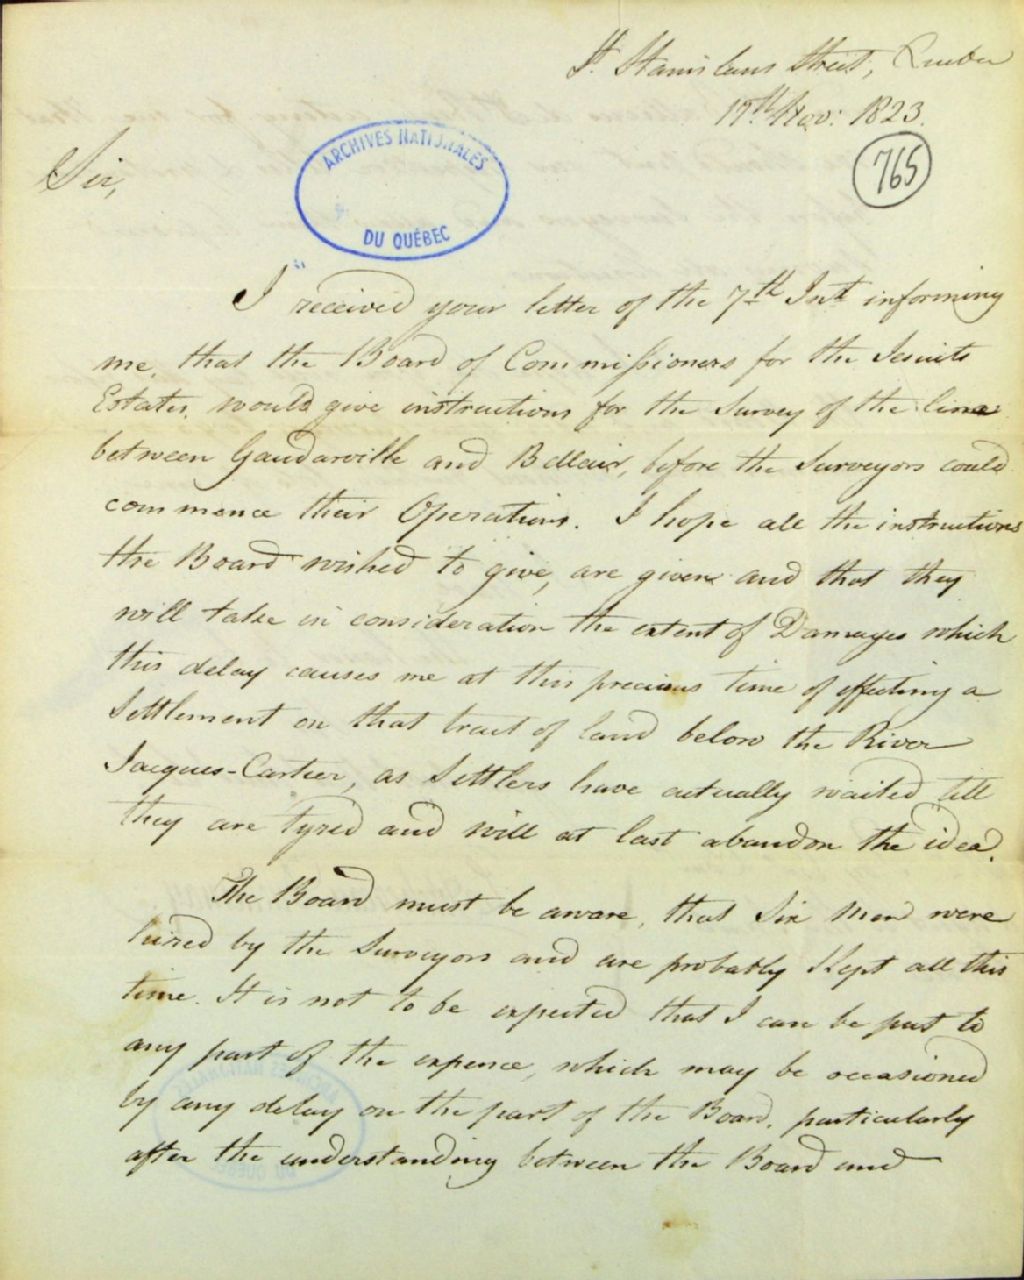 St. Stanislaus Street, Quebec
17th Nov: 1823.
765
Sir,
ARCHIVES NATIONALES
DU QUÉBEC
I received your letter of the 7th Inst informing
me, that the Board of Commissioners for the Jesuits
Estates, would give instructions for the Survey of the line
between Gaudarville and Bellair, before the Surveyors could
commence their Operations. I hope all the instructions
the Board wished to give, are given and that they
will take in consideration the extent of Damages which
this delay causes me at this precious time of effecting a
Settlement on that tract of land below the River
Jacques-Cartier, as Settlers have actually waited till
they are tyred and will at last abandon the idea.
The Board must be aware, that Six Men were
hired by the Surveyors and are probably Kept all this
time. It is not to be expected that I can be put to
any part of the expence, which may be occasioned
by any delay on the part of the Board, particularly
after the understanding between the Board and